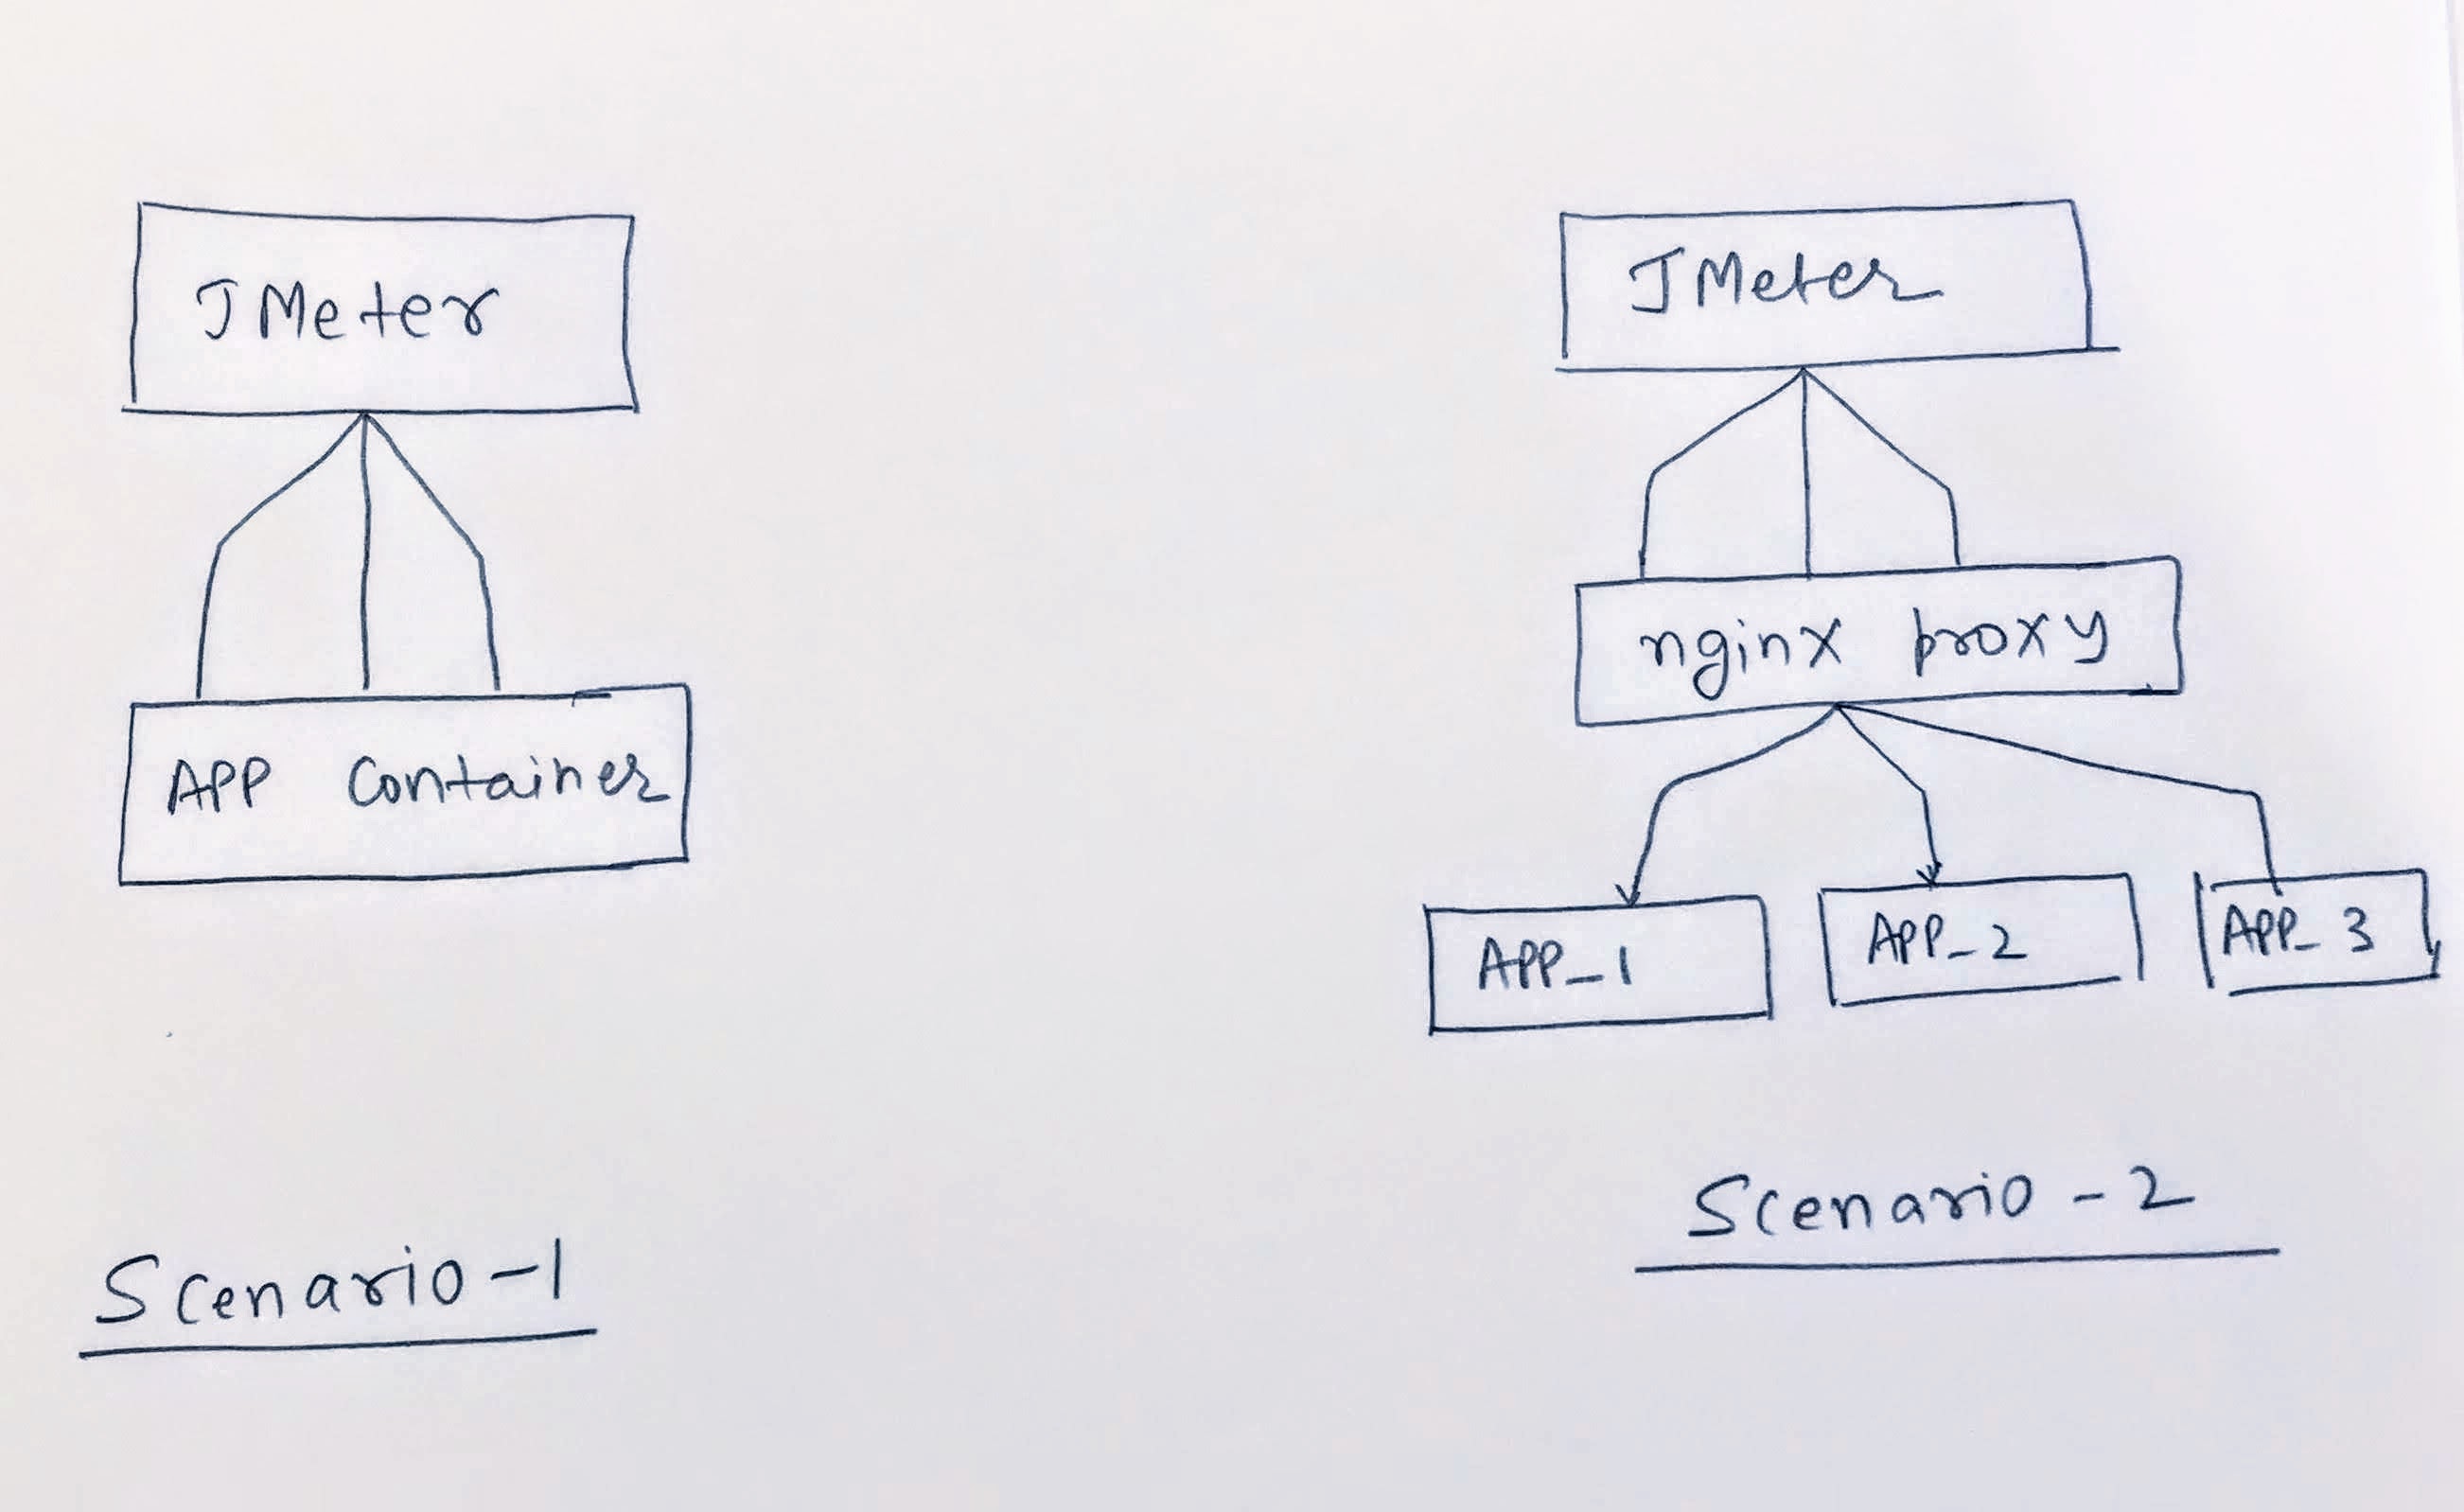 JMeter
APP Container
Scenario-1
JMeter
nginx proxy
APP_1
APP_2
APP_3
Scenario-2